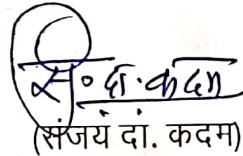 स. दा. कदम
(संजय दा. कदम)